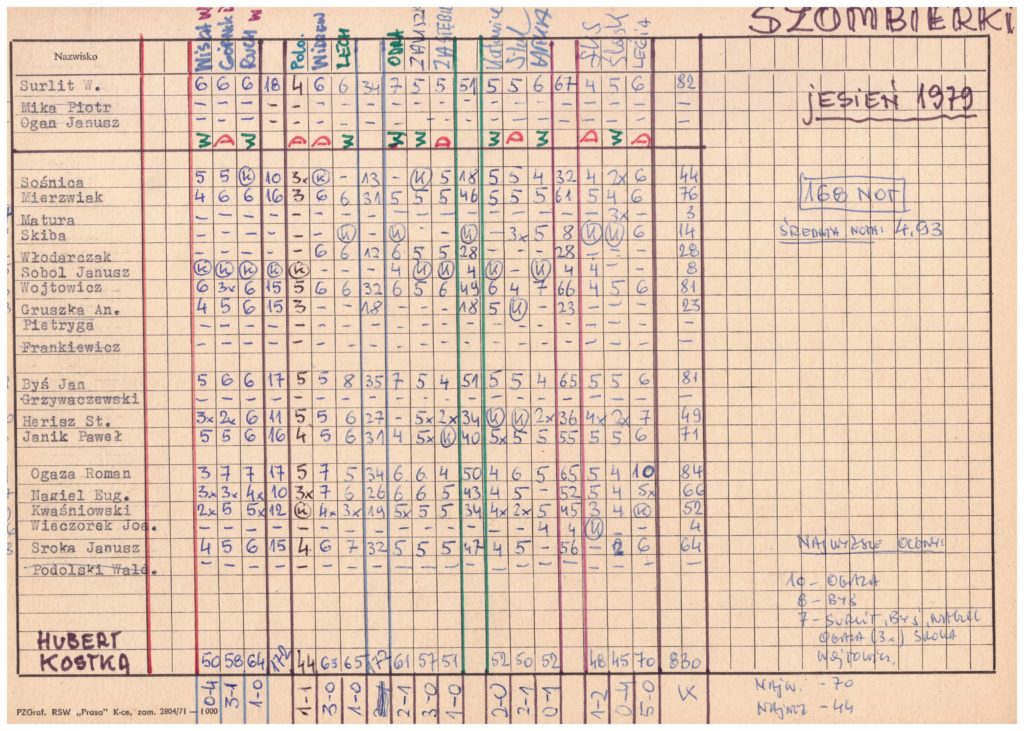 SZOMBIERKI
WISŁA W
GÓRNIK
RUCH W
Polo.
WIDZEW
LECH
ODRA
ZAGŁĘBIE
Katowice
Stal
ARKA
ŁKS
Śląsk
LEGIA
Nazwisko
Surlit W. 6 6 6 18 4 6 6 34 7 5 5 51 5 5 6 67 4 5 6 82
Mika Piotr - - - - - - - - - - - - - - - - - - - -
Ogan Janusz - - - - - - - - - - - - - - - - - - - -
jESIEŃ 1979
Sośnica 5 5 K 10 3x K - 13 - K 5 18 5 5 4 32 4 2x 6 44
Mierzwiak 4 6 6 16 3 6 6 31 5 5 5 46 5 5 5 61 5 4 6 76
Matura - - - - - - - - - - - - - - - - - 3x - 3
Skiba K K K - 3x 5 8 K K 6 14
Włodarczak 6 6 12 6 5 5 28 - - - 28 - - - 28
Sobol Janusz K K K K K - - - 4 K K 4 K - K 4 4 - - 8
Wojtowicz 6 3x 6 15 5 6 6 32 6 5 6 49 6 4 7 66 4 5 6 81
Gruszka An. 4 5 6 15 3 - - 18 - - - 18 5 K - 23 - - - 23
Pietryga
Frankiewicz
168 NOT
ŚREDNIA NOTA: 4,93
Byś Jan 5 6 6 17 5 5 8 35 7 5 4 51 5 5 4 65 5 5 6 81
Grzywaczewski
Herisz St. 3x 2x 6 11 5 5 6 27 - 5x 2x 34 K K 2x 36 4x 2x 7 49
Janik Paweł 5 5 6 16 4 5 6 31 4 5x K 40 5x 5 5 55 5 5 6 71
Ogaza Roman 3 7 7 17 5 7 5 34 6 6 4 50 4 6 5 65 5 4 10 84
Nagiel Eug. 3x 3x 4x 10 3x 7 6 26 6 6 5 43 4 5 - 52 5 4 5x 66
Kwaśniowski 2x 5 5x 12 K 4x 3x 19 5x 5 5 34 4x 2x 5 45 3 4 K 52
Wieczorek Joa. - - - - - - - - - - - - - - 4 4 K - - 4
Sroka Janusz 4 5 6 15 4 6 7 32 5 5 5 47 4 5 - 56 - 2 6 64
Podolski Wald.
NAJWYŻSZE OCENY:
10 - OGAZA
8 - BYŚ
7 - SURLIT, BYŚ, NAGIEL
OGAZA (3x) SROKA
WOJTOWICZ.
HUBERT
KOSTKA 50 58 64 172 44 63 65 61 57 51 52 50 52 48 45 70 830
0-4 3-1 1-0 1-1 3-0 1-0 2-1 3-0 1-0 2-0 0-1 1-2 0-4 5-0
NAJW. - 70
NAJNIŻ - 44
PZGraf. RSW „Prasa" K-ce, zam. 2804/71 — 1000